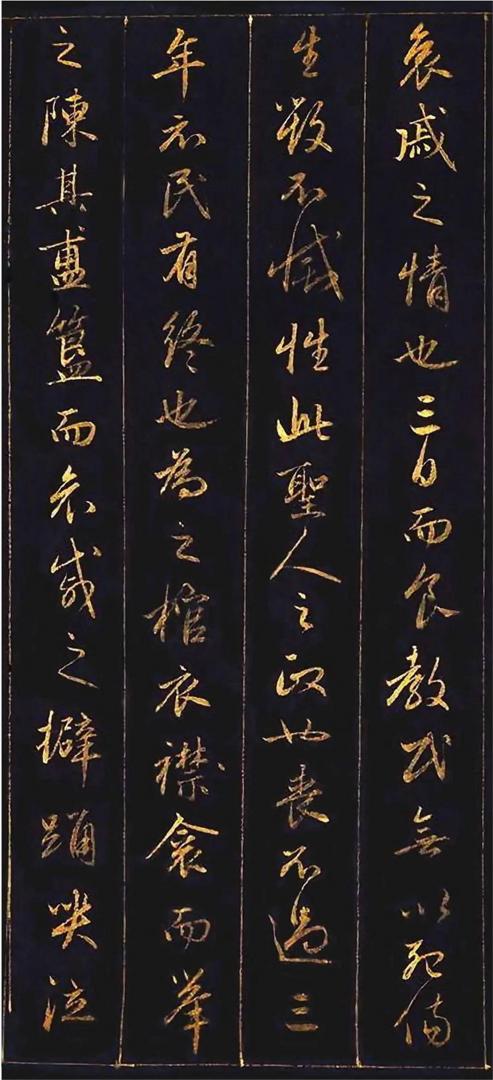 哀戚之情也三日而食教民無以死傷
生毀不滅性此聖人之政也喪不過三
年示民有終也為之棺衣襟衾而舉
之陳其簠簋而哀慼之擗踊哭泣